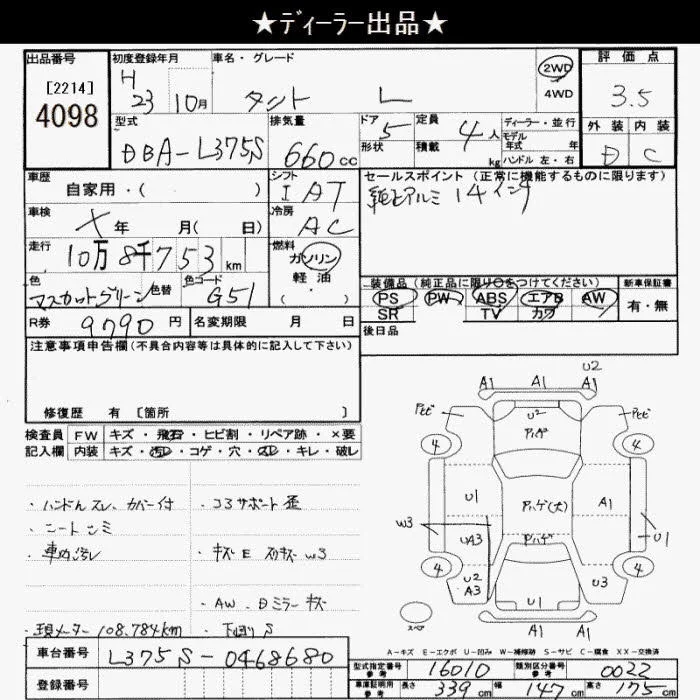 ★ディーラー出品★
出品番号 初度登録年月 車名・グレード 評価点
[2214] H 23 10月 タント L 2WD 4WD 3.5
4098
型式 排気量 ドア 定員 ディーラー・並行 外装 内装
DBA-L375S 660cc 5 4人 モデル年式 年 D C
形状 積載 kg ハンドル 左・右
車歴 シフト セールスポイント(正常に機能するものに限ります)
自家用・( ) IAT 純正アルミ14インチ
車検 冷房
年 月( 日) AC
走行 燃料
10万8千753km ガソリン
色 色替 色コード 軽・油 装備品(純正品に限り○をつけてください) 新車保証書
マスカットグリーン G51 ( ・ ) PS PW ABS エアB AW 有・無
SR TV カワ
R券 9790円 名変期限 月 日 後日品
注意事項申告欄(不具合内容等は具体的に記入して下さい)
修復歴 有 [箇所 ]
検査員 FW キズ・飛石・ヒビ割・リペア跡・×要
記入欄 内装 キズ・汚レ・コゲ・穴・スレ・キレ・破レ
・ハンドルスレ、カバー付 ・コアサポート歪
・シートシミ
・車内汚レ ・キズE スリキズW3
・AW、Dミラーキズ
・現メーター108.784km ・下廻りS
U2
A1 A1 A1
アセビ U2 アセビ
4 4
U1 A1
W3 UA3 U1
4 4
U2 A3 U3
U1
A1
スペア
A-キズ E-エクボ U-凹み W-補修跡 S-サビ C-腐食 XX-交換済
車台番号 L375S-0468680
型式指定番号 参考 16010 類別区分番号 参考 0022
登録番号
車庫証明用 参考 長さ 339cm 幅 147cm 高さ 175cm